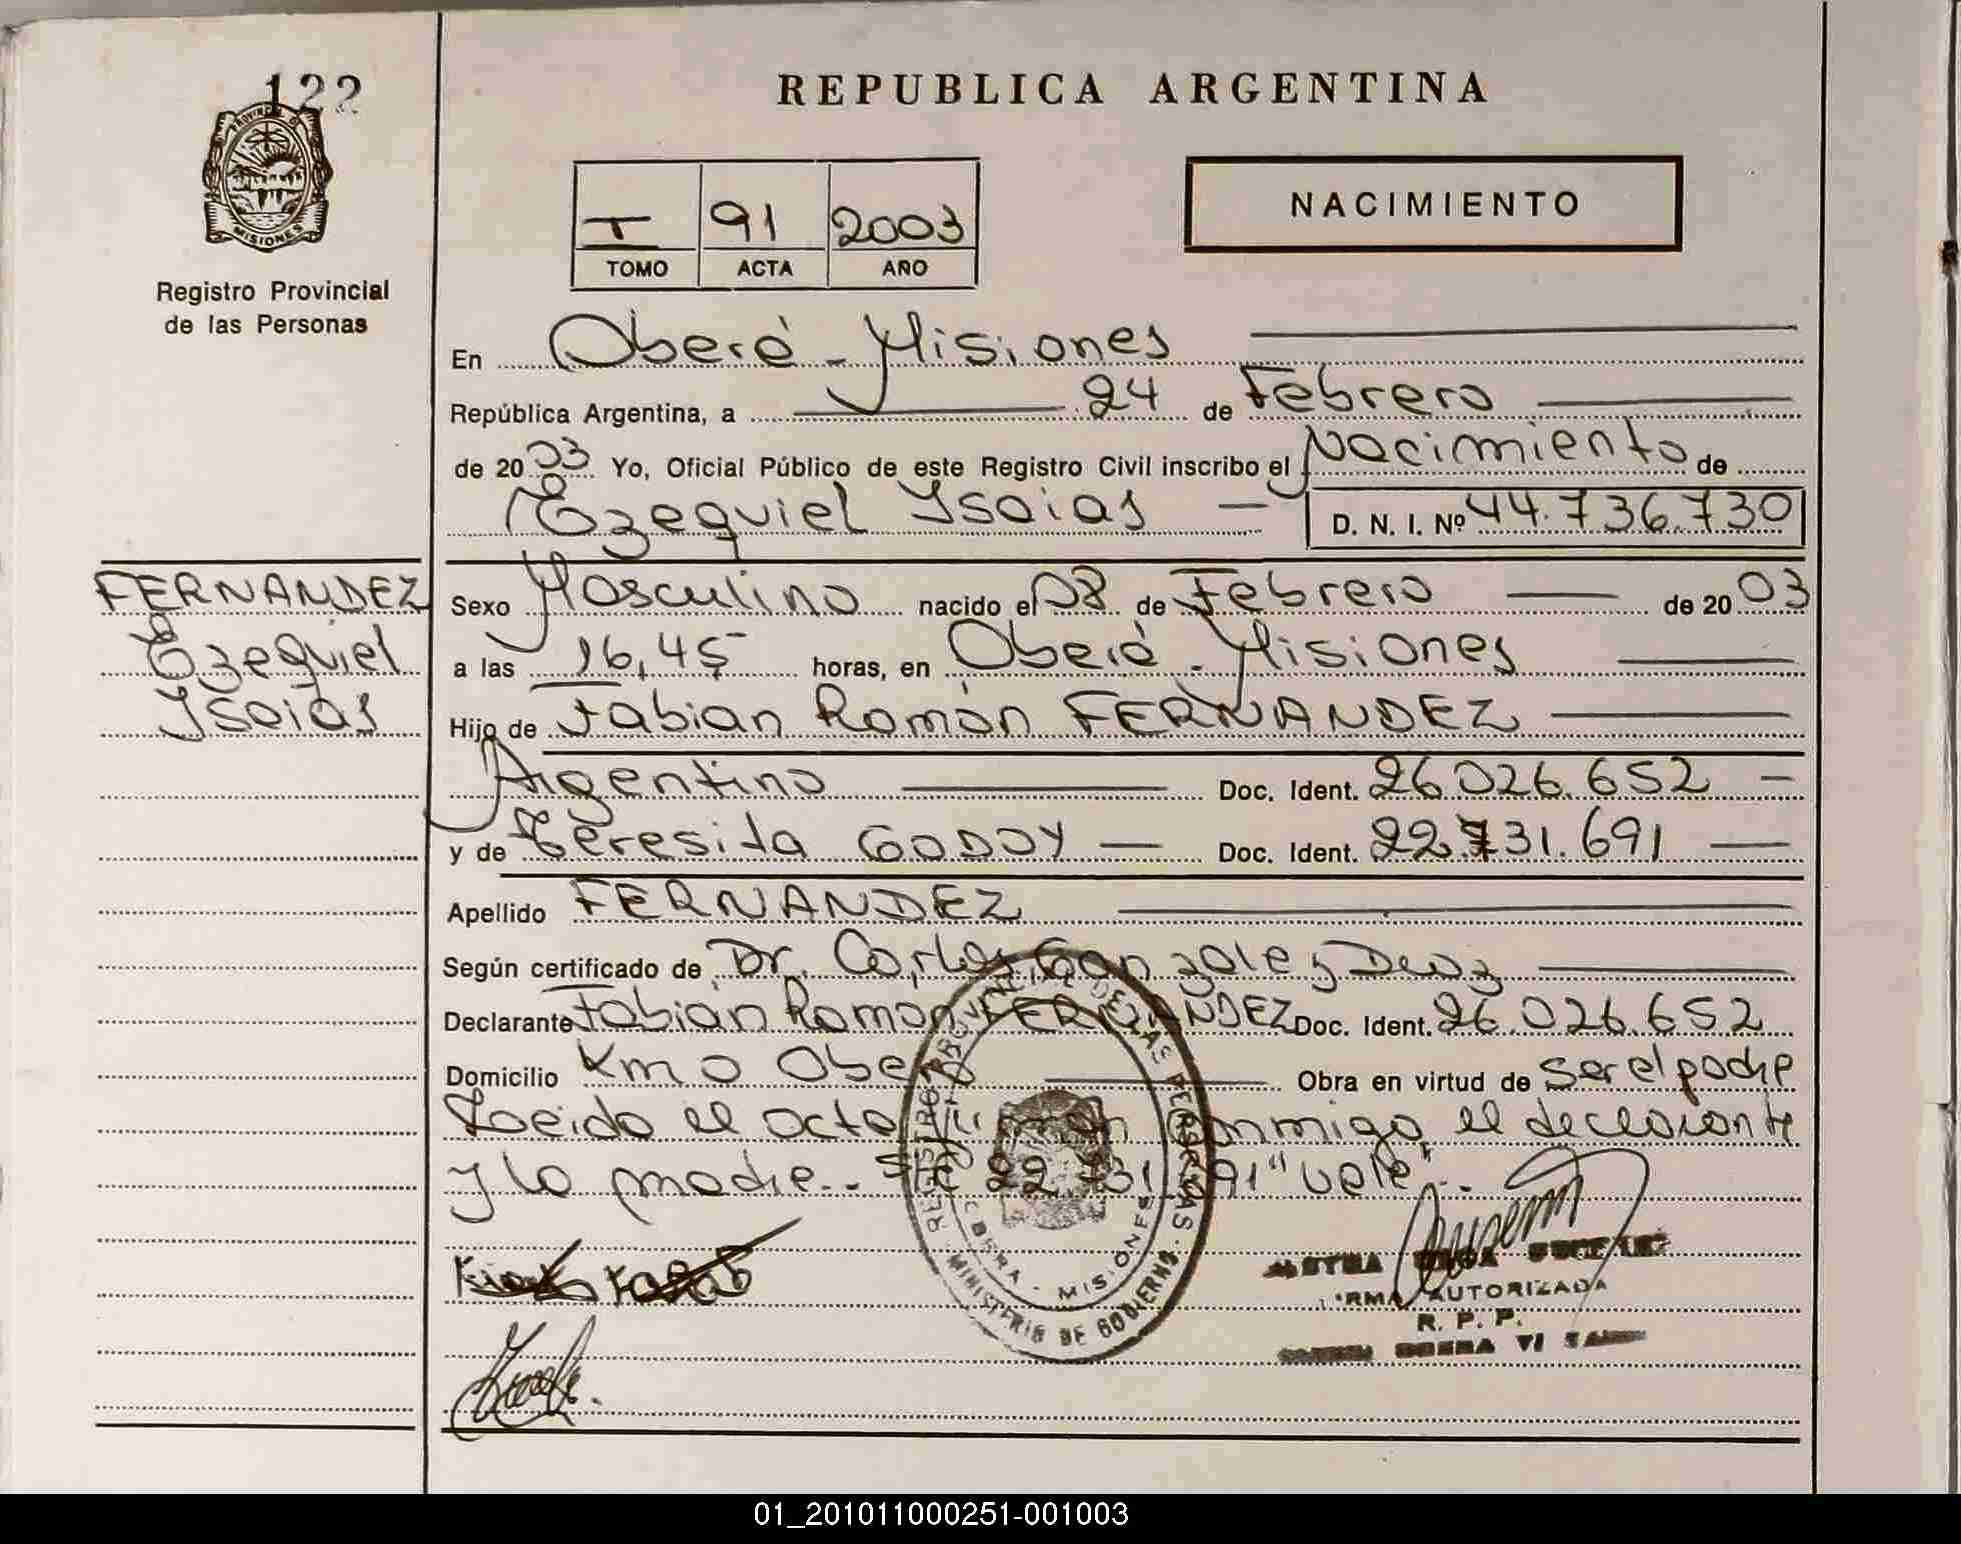 122
PROVINCIA DE
MISIONES
Registro Provincial
de las Personas
REPUBLICA ARGENTINA
I 91 2003
TOMO ACTA AÑO
NACIMIENTO
En Oberá - Misiones
República Argentina, a 24 de Febrero
de 2003 Yo, Oficial Público de este Registro Civil inscribo el Nacimiento de
Ezequiel Isaias — D. N. I. Nº 44.736.730
FERNANDEZ
Ezequiel
Isaias
Sexo Masculino nacido el 08 de Febrero de 2003
a las 16,45 horas, en Oberá - Misiones
Hijo de Fabian Ramón FERNANDEZ
Argentino Doc. Ident. 26.026.652 —
y de Teresita GODOY — Doc. Ident. 22.731.691 —
Apellido FERNANDEZ
Según certificado de Dr. Carlos Gonzalez
Declarante Fabián Ramon FERNANDEZ Doc. Ident. 26.026.652
Domicilio Km 0 Oberá Obra en virtud de ser el padre
Leido el acta firman conmigo el declarante
y la madre.- 22.731.691 "vale".-
REGISTRO PROVINCIAL DE LAS PERSONAS
OBERA - MISIONES
MINISTERIO DE GOBIERNO
FIRMA AUTORIZADA
R. P. P.
01_201011000251-001003